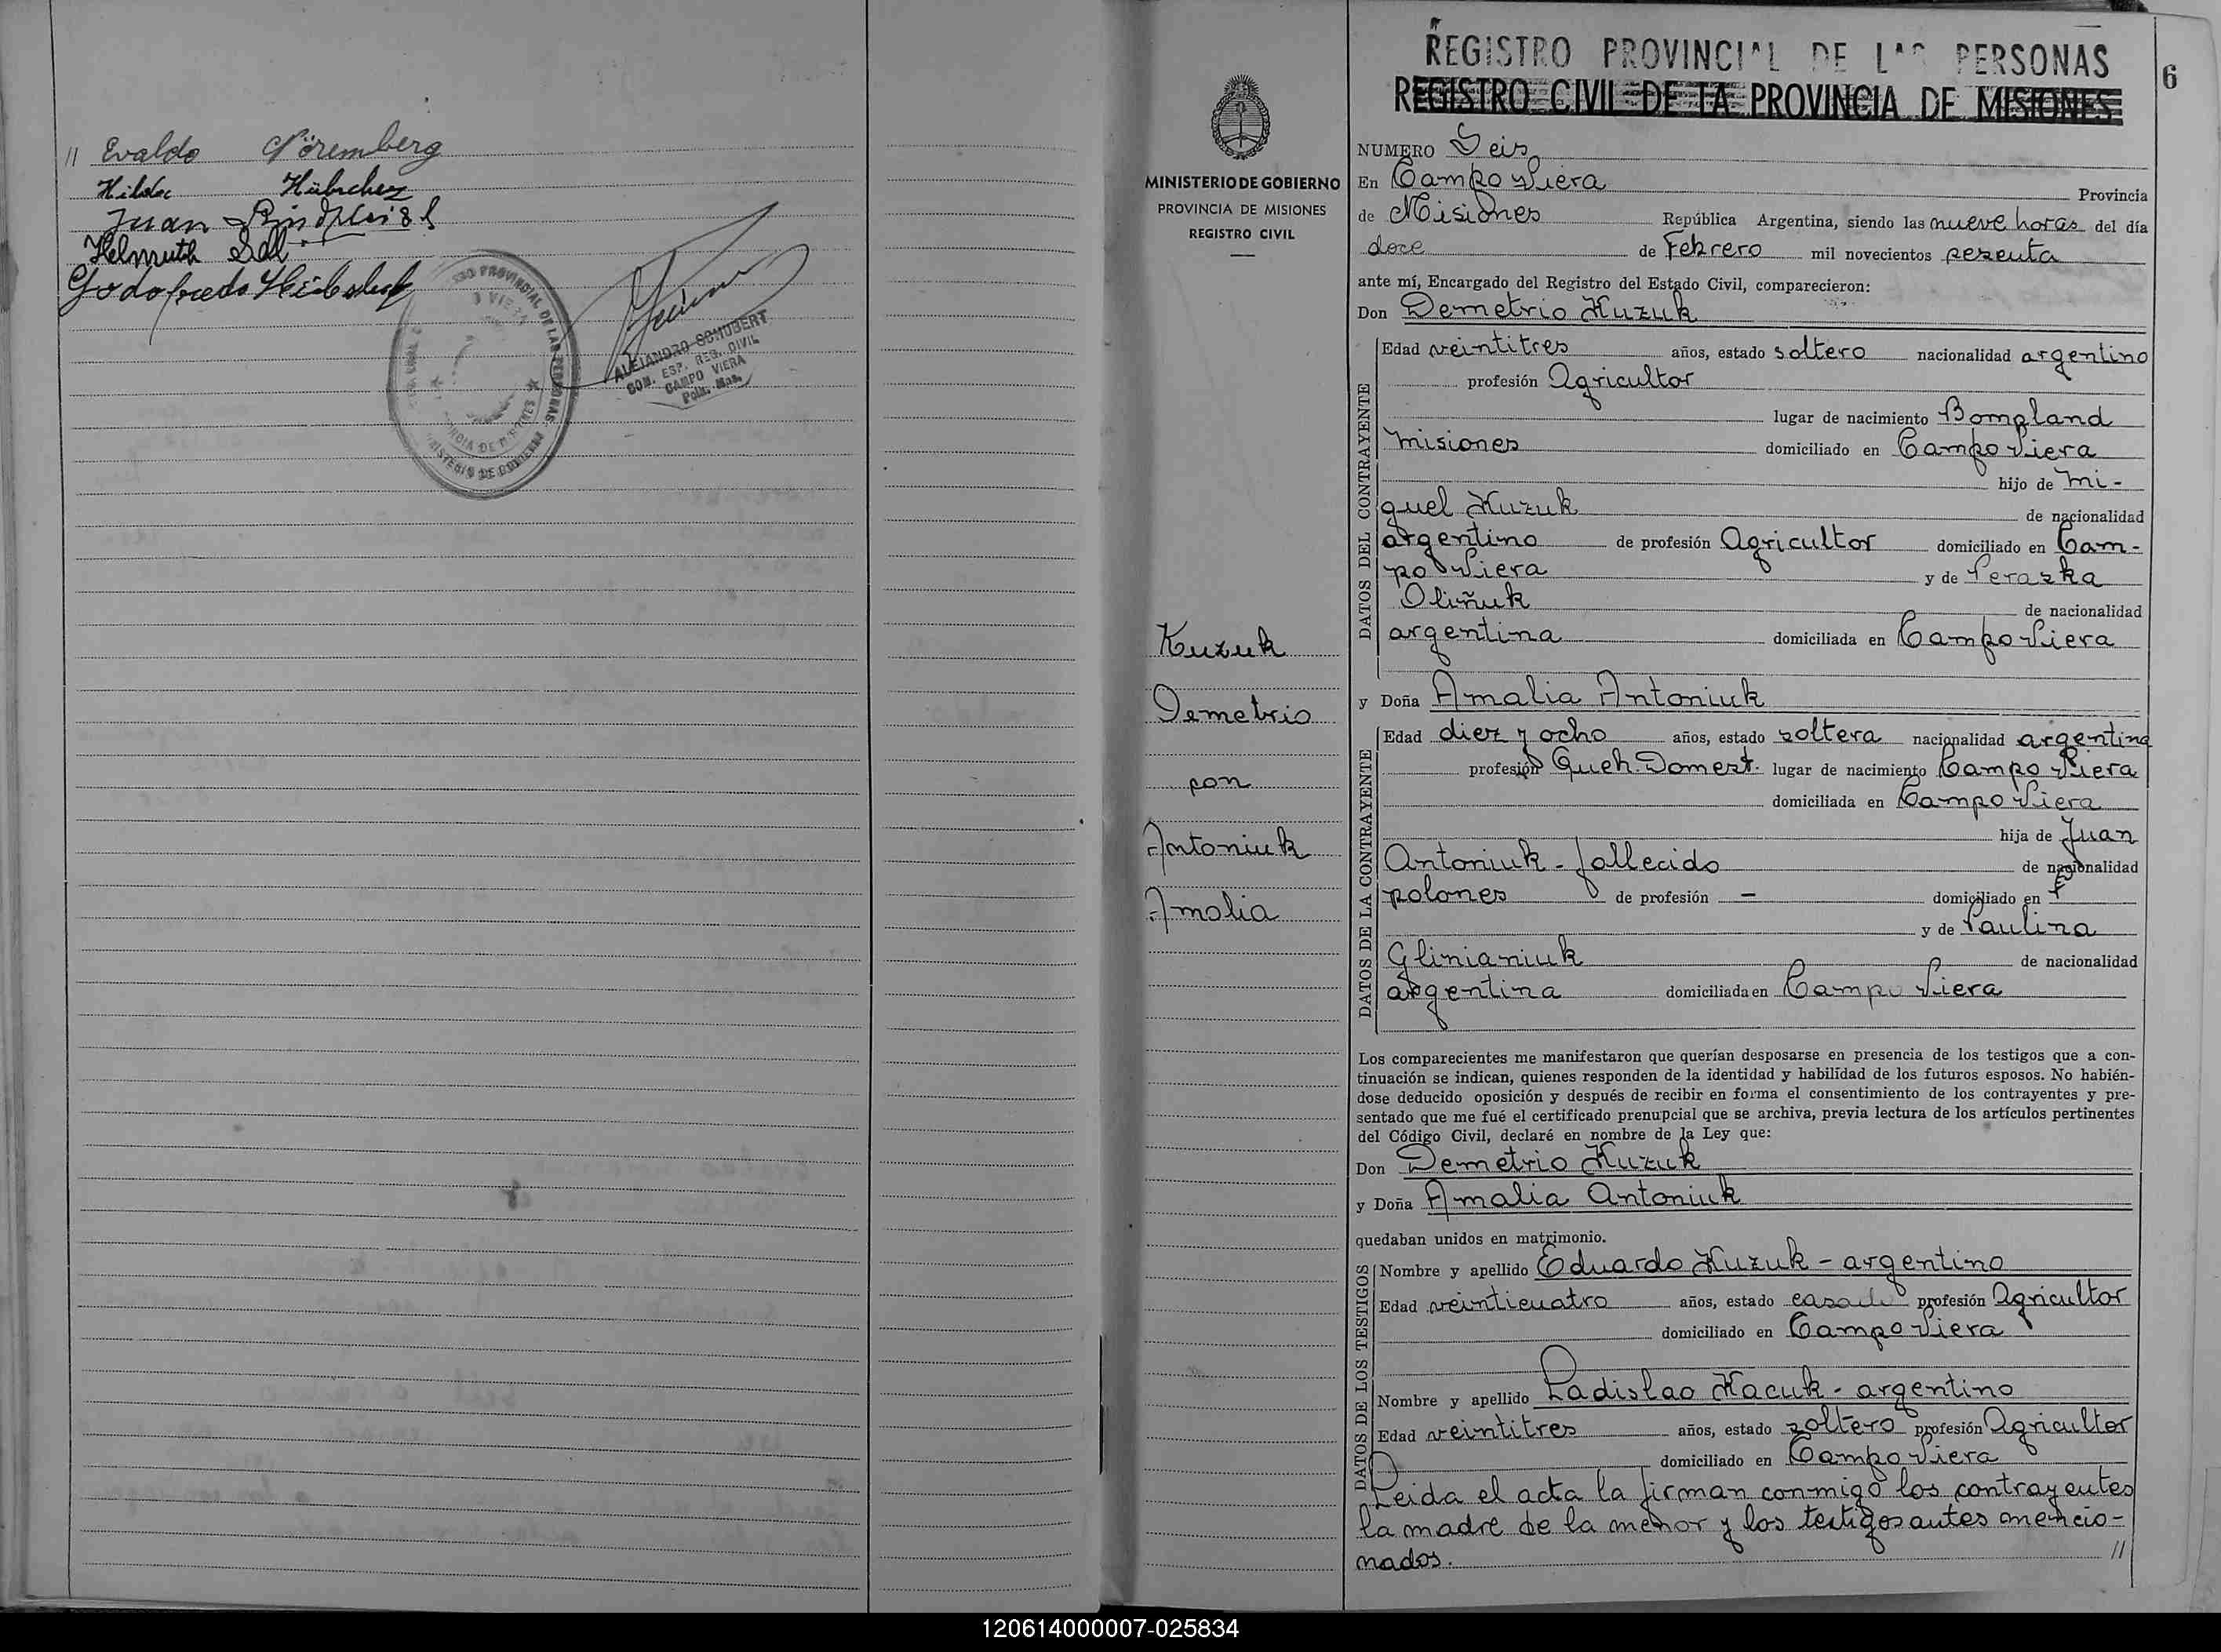 // Evaldo Nöremberg
Hilda
Juan
Helmuth
Godofredo
ALEJANDRO SCHUBERT
REG. CIVIL
CAMPO VIERA
MINISTERIO DE GOBIERNO
PROVINCIA DE MISIONES
REGISTRO CIVIL
Kuzuk
Demetrio
con
Antoniuk
Amalia
REGISTRO PROVINCIAL DE LAS PERSONAS
REGISTRO CIVIL DE LA PROVINCIA DE MISIONES
6
NUMERO Seis
En Campo Viera Provincia
de Misiones República Argentina, siendo las nueve horas del día
doce de Febrero mil novecientos sesenta
ante mí, Encargado del Registro del Estado Civil, comparecieron:
Don Demetrio Kuzuk
DATOS DEL CONTRAYENTE
Edad veintitres años, estado soltero nacionalidad argentino
profesión Agricultor
lugar de nacimiento Bompland
Misiones domiciliado en Campo Viera
hijo de Mi-
guel Kuzuk de nacionalidad
argentino de profesión Agricultor domiciliado en Cam-
po Viera y de Peraska
Oliñuk de nacionalidad
argentina domiciliada en Campo Viera
y Doña Amalia Antoniuk
DATOS DE LA CONTRAYENTE
Edad diez y ocho años, estado soltera nacionalidad argentina
profesión Queh. Domest. lugar de nacimiento Campo Viera
domiciliada en Campo Viera
hija de Juan
Antoniuk - fallecido de nacionalidad
polones de profesión — domiciliado en
y de Paulina
Glinianiuk de nacionalidad
argentina domiciliada en Campo Viera
Los comparecientes me manifestaron que querían desposarse en presencia de los testigos que a con-
tinuación se indican, quienes responden de la identidad y habilidad de los futuros esposos. No habién-
dose deducido oposición y después de recibir en forma el consentimiento de los contrayentes y pre-
sentado que me fué el certificado prenupcial que se archiva, previa lectura de los artículos pertinentes
del Código Civil, declaré en nombre de la Ley que:
Don Demetrio Kuzuk
y Doña Amalia Antoniuk
quedaban unidos en matrimonio.
DATOS DE LOS TESTIGOS
Nombre y apellido Eduardo Kuzuk - argentino
Edad veinticuatro años, estado casado profesión Agricultor
domiciliado en Campo Viera
Nombre y apellido Ladislao Kacuk - argentino
Edad veintitres años, estado soltero profesión Agricultor
domiciliado en Campo Viera
Leida el acta la firman conmigo los contrayentes
la madre de la menor y los testigos antes mencio-
nados. //
120614000007-025834